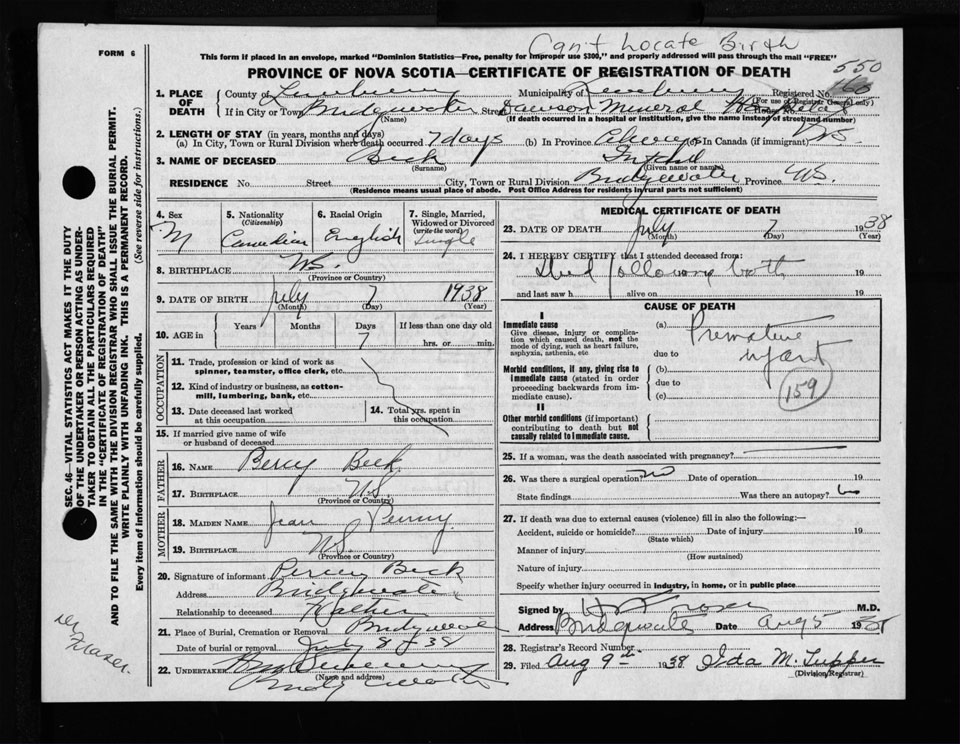 Can't Locate Birth
FORM 6
This form if placed in an envelope, marked "Dominion Statistics—Free, penalty for improper use $300," and properly addressed will pass through the mail "FREE"
PROVINCE OF NOVA SCOTIA—CERTIFICATE OF REGISTRATION OF DEATH
550
1. PLACE OF DEATH
County of Lunenburg Municipality of Lunenburg Registered No.
(For use of Registrar General only)
If in City or Town Bridgewater Street Dawson Mineral Hospital House No.
(Name) (If death occurred in a hospital or institution, give the name instead of street and number)
2. LENGTH OF STAY (in years, months and days)
(a) In City, Town or Rural Division where death occurred 7 days (b) In Province Always (c) In Canada (if immigrant)
3. NAME OF DECEASED Beck Infant
(Surname) (Given name or names)
RESIDENCE No. Street City, Town or Rural Division Bridgewater Province N.S.
(Residence means usual place of abode. Post Office Address for residents in rural parts not sufficient)
4. Sex M
5. Nationality (Citizenship) Canadian
6. Racial Origin English
7. Single, Married, Widowed or Divorced (write the word) Single
8. BIRTHPLACE N.S.
(Province or Country)
9. DATE OF BIRTH July 7 1938
(Month) (Day) (Year)
10. AGE in Years Months Days If less than one day old
7 hrs. or min.
OCCUPATION
11. Trade, profession or kind of work as spinner, teamster, office clerk, etc.
12. Kind of industry or business, as cotton-mill, lumbering, bank, etc.
13. Date deceased last worked at this occupation
14. Total yrs. spent in this occupation
15. If married give name of wife or husband of deceased
FATHER
16. NAME Percy Beck
17. BIRTHPLACE N.S.
(Province or Country)
MOTHER
18. MAIDEN NAME Jean Penny
19. BIRTHPLACE N.S.
(Province or Country)
20. Signature of informant Percy Beck
Address Bridgewater
Relationship to deceased Father
21. Place of Burial, Cremation or Removal Bridgewater
Date of burial or removal July 8 1938
22. UNDERTAKER
(Name and address)
Bridgewater
MEDICAL CERTIFICATE OF DEATH
23. DATE OF DEATH July 7 1938
(Month) (Day) (Year)
24. I HEREBY CERTIFY that I attended deceased from:
Died following birth 19
and last saw h alive on 19
CAUSE OF DEATH
I
Immediate cause
Give disease, injury or complication which caused death, not the mode of dying, such as heart failure, asphyxia, asthenia, etc
(a) Premature
due to infant
Morbid conditions, if any, giving rise to immediate cause (stated in order proceeding backwards from immediate cause).
(b)
due to
(c)
159
II
Other morbid conditions (if important) contributing to death but not causally related to immediate cause.
25. If a woman, was the death associated with pregnancy?
26. Was there a surgical operation? no Date of operation 19
State findings Was there an autopsy? no
27. If death was due to external causes (violence) fill in also the following:—
Accident, suicide or homicide? Date of injury 19
(State which)
Manner of injury
(How sustained)
Nature of injury
Specify whether injury occurred in industry, in home, or in public place
Signed by M.D.
Address Bridgewater Date Aug 5 1938
28. Registrar's Record Number
29. Filed Aug 9th 1938 Ida M. Tupper
(Division Registrar)
SEC. 46—VITAL STATISTICS ACT MAKES IT THE DUTY
OF THE UNDERTAKER OR PERSON ACTING AS UNDER-
TAKER TO OBTAIN ALL THE PARTICULARS REQUIRED
IN THE "CERTIFICATE OF REGISTRATION OF DEATH"
AND TO FILE THE SAME WITH THE DIVISION REGISTRAR WHO SHALL ISSUE THE BURIAL PERMIT.
WRITE PLAINLY WITH UNFADING INK. THIS IS A PERMANENT RECORD.
Every item of information should be carefully supplied. (See reverse side for instructions.)
Dr
Fraser.